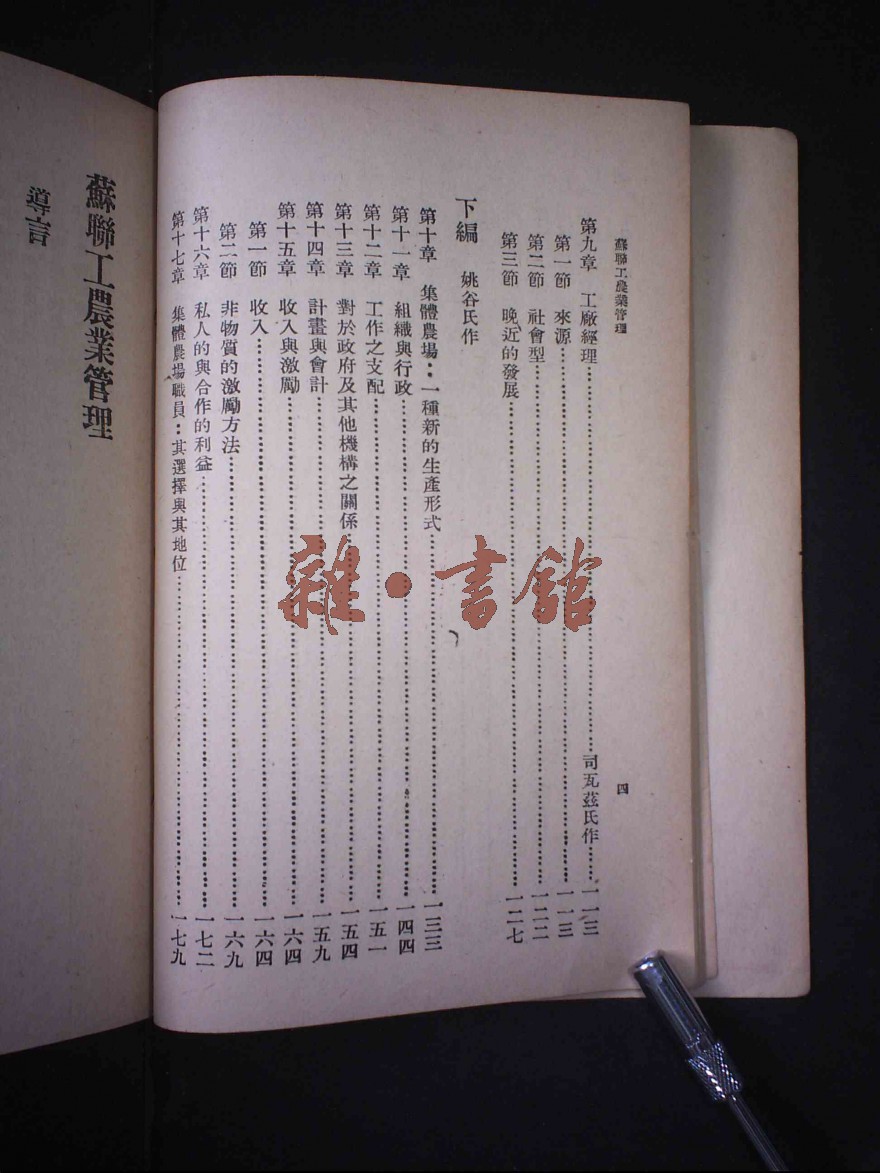 蘇聯工農業管理
四
第九章　工廠經理……司瓦茲氏作……一一三
第一節　來源……一一三
第二節　社會型……一二二
第三節　晚近的發展……一二七
下編　姚谷氏作
第十章　集體農場：一種新的生產形式……一三三
第十一章　組織與行政……一四四
第十二章　工作之支配……一五一
第十三章　對於政府及其他機構之關係……一五四
第十四章　計畫與會計……一五九
第十五章　收入與激勵……一六四
第一節　收入……一六四
第二節　非物質的激勵方法……一六九
第十六章　私人的與合作的利益……一七二
第十七章　集體農場職員：其選擇與其地位……一七九
蘇聯工農業管理
導言
雜·書館